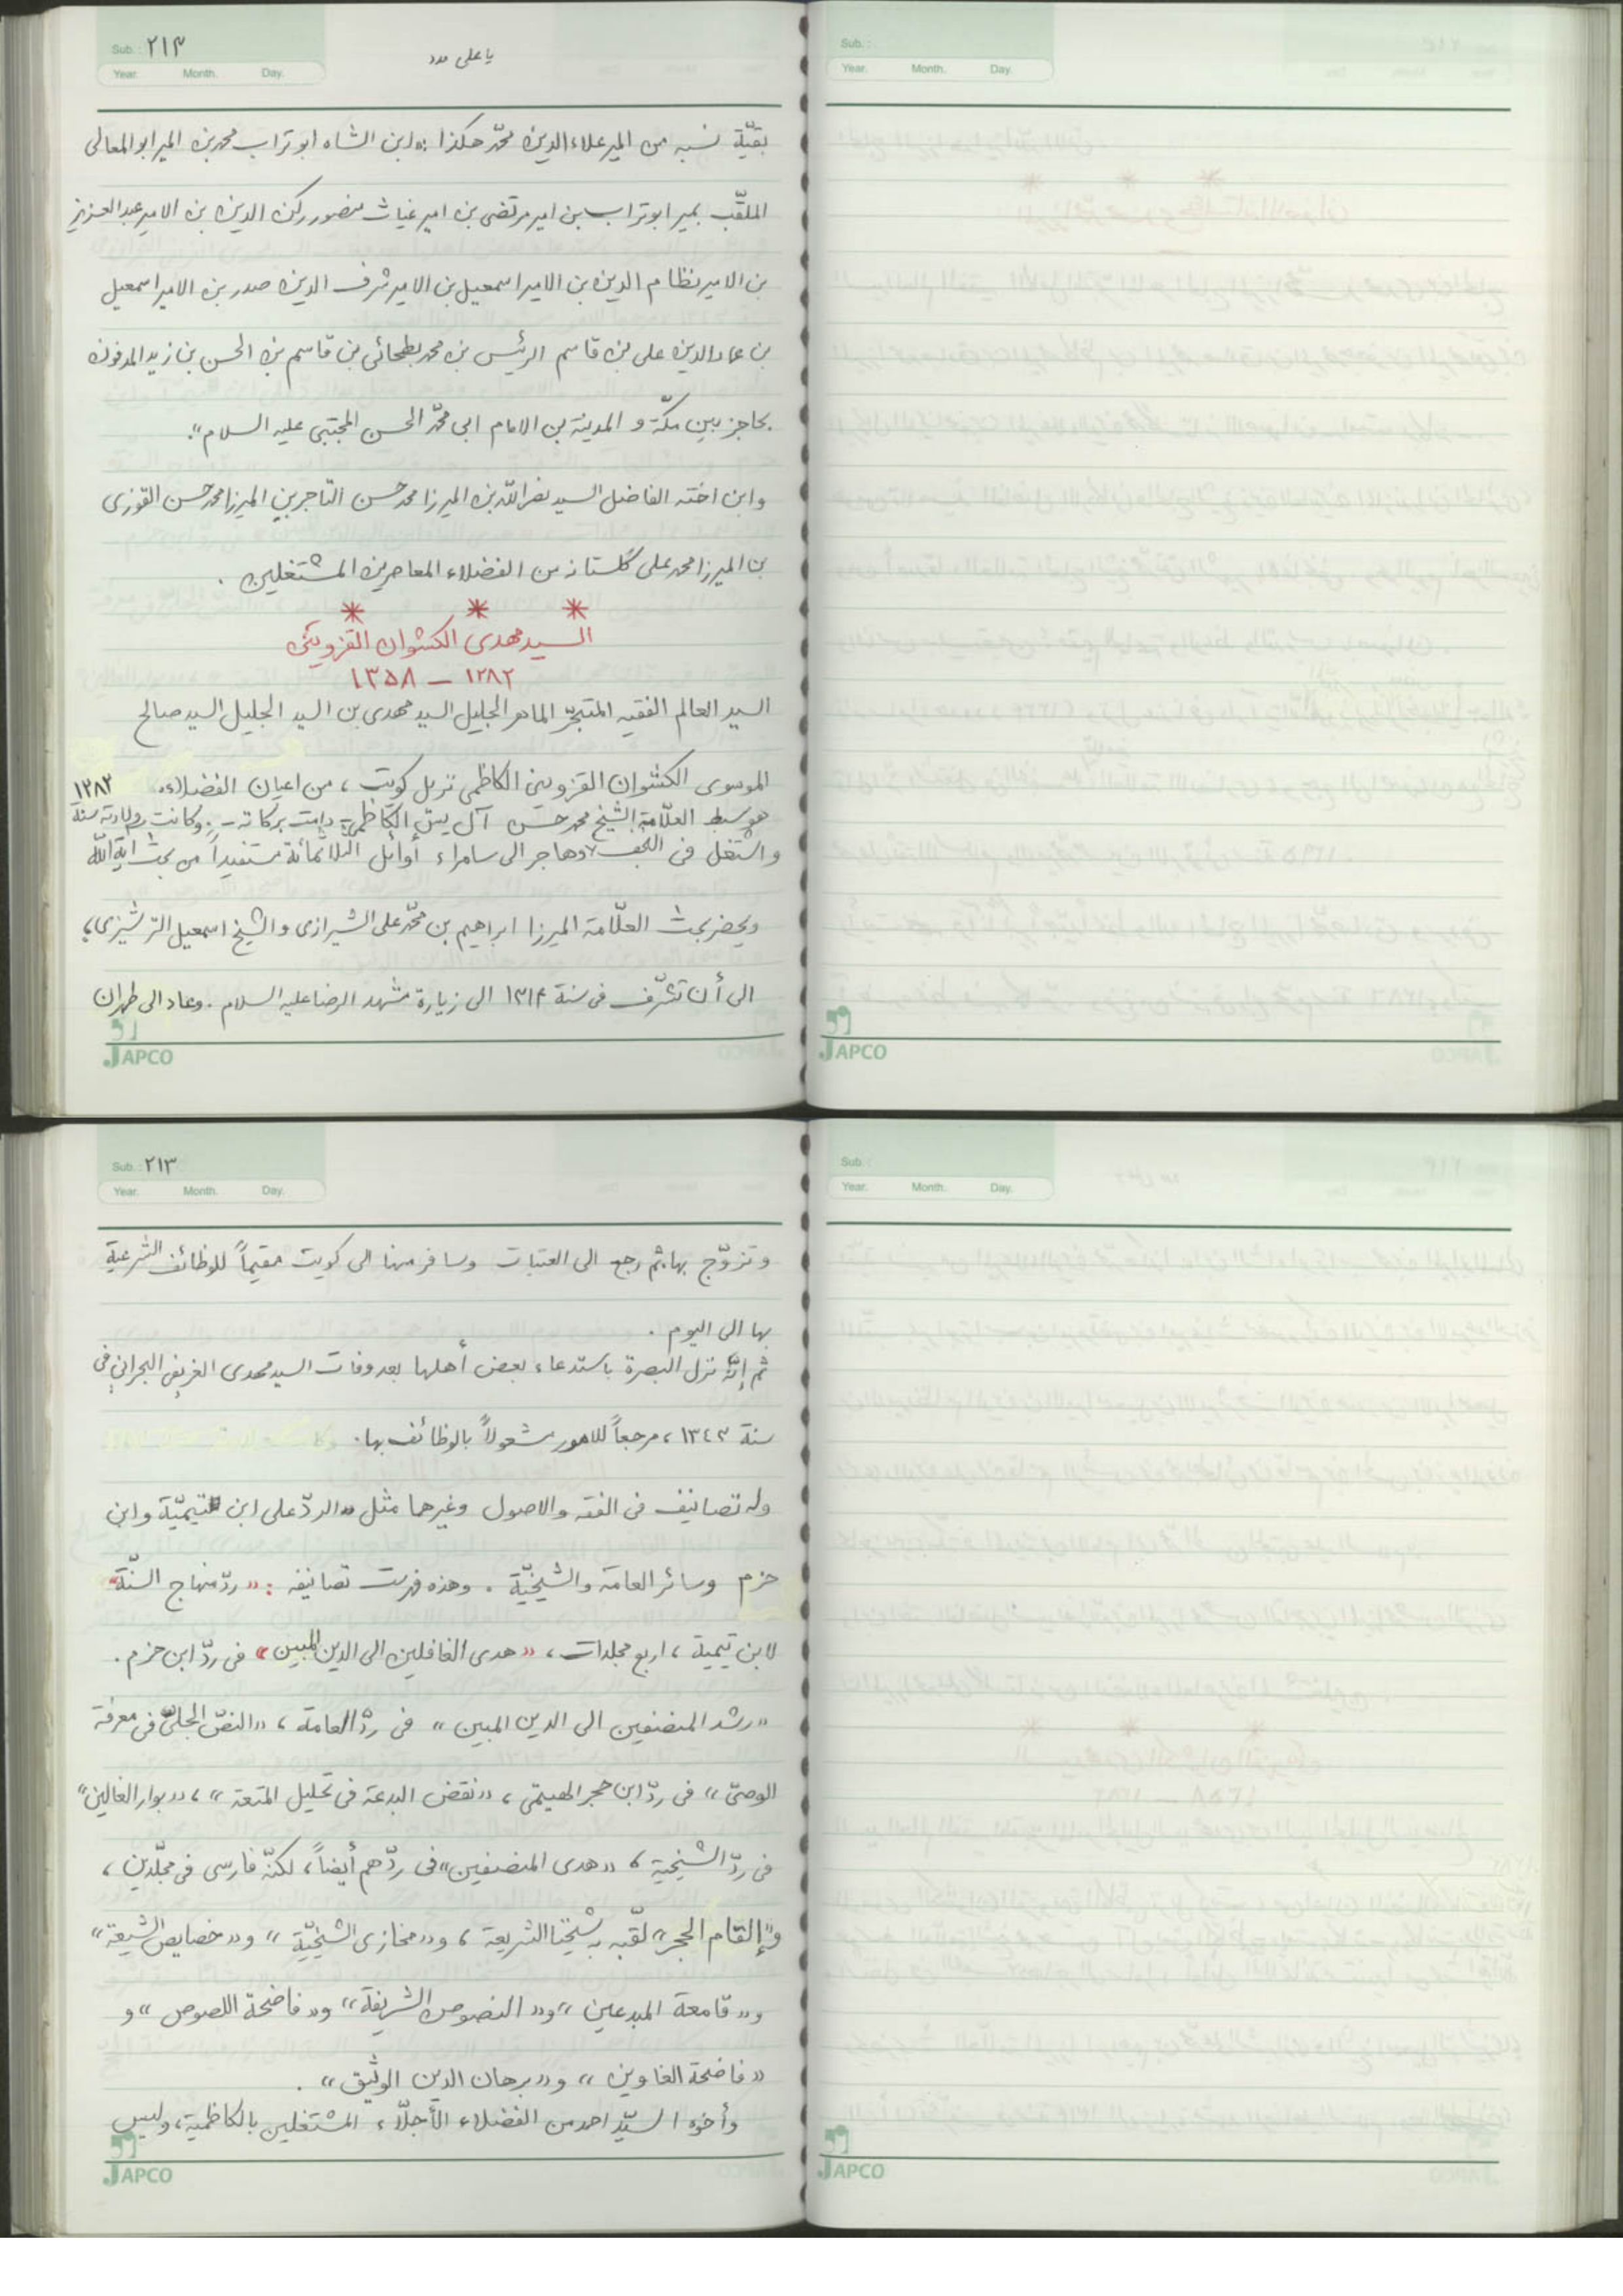 Sub.: ٢١٢
Year. Month. Day.
يا على مدد
بقيّة نسبه من المير علاءالدين محمّد هكذا: «ابن الشاه ابوتراب محمد بن المير ابوالمعالى
الملقّب بمير ابوتراب بن امير مرتضى بن امير غياث منصور ركن الدين بن الامير عبدالعزيز
بن الامير نظام الدين بن الامير اسمعيل بن الامير شرف الدين صدر بن الامير اسمعيل
بن عمادالدين على بن قاسم الرئيس بن محمد بطحائى بن قاسم بن الحسن بن زيد المدفون
بحاجز بين مكّة و المدينة بن الامام ابى محمّد الحسن المجتبى عليه السلام».
وابن اخته الفاضل السيد نصرالله بن الميرزا محمد حسن التاجر بن الميرزا محمد حسن القوزى
بن الميرزا محمد على گلستانه من الفضلاء المعاصرين المشتغلين .
* * *
السيد مهدى الكشوان القزوينى
١٢٨٢ ــ ١٣٥٨
السيد العالم الفقيه المتبحّر الماهر الجليل السيد مهدى بن السيد الجليل السيد صالح
الموسوى الكشوان القزوينى الكاظمى نزيل كويت ، من اعيان الفضلاء. ١٢٨٢
هو سبط العلّامة الشيخ محمد حسن آل يس الكاظمى - دامت بركاته -. وكانت ولادته سنة
واشتغل فى النجف وهاجر الى سامراء أوائل الثلاثمائة مستفيداً من بحث آية الله
ويحضر بحث العلّامة الميرزا ابراهيم بن محمّد على الشيرازى والشيخ اسمعيل الترشيزى،
الى أن تشرّف فى سنة ١٣١۴ الى زيارة مشهد الرضا عليه السلام . وعاد الى طهران
JAPCO
Sub.:
Year. Month. Day.
JAPCO
Sub.: ٢١٣
Year. Month. Day.
وتزوّج بها، ثم رجع الى العتبات وسافر منها الى كويت مقيماً للوظائف الشرعية
بها الى اليوم .
ثم إنّه نزل البصرة باستدعاء بعض أهلها بعد وفات السيد مهدى الغريفى البحرانى فى
سنة ١٣٤٣ ، مرجعاً للامور مشغولاً بالوظائف بها.
وله تصانيف فى الفقه والاصول وغيرهما مثل «الردّ على ابن تيميّة وابن
حزم وسائر العامة والشيخيّة . وهذه فهرست تصانيفه : «ردّ منهاج السنّة»
لابن تيمية ، اربع مجلدات ، «هدى الغافلين الى الدين المبين» فى ردّ ابن حزم .
«رشد المنصفين الى الدين المبين» فى ردّ العامة ، «النصّ الجلىّ فى معرفة
الوصىّ» فى ردّ ابن حجر الهيتمى ، «نقض البدعة فى تحليل المتعة» ، «بوار الغالين»
فى ردّ الشيخية ، «هدى المنصفين» فى ردّهم أيضاً ، لكنّه فارسى فى مجلّدين ،
و«إلقام الحجر» لقّبه به شيخنا الشريعة ، و«مخازى الشيخيّة» و«خصايص الشيعة»
و«قامعة المبدعين» و«النصوص الشريفة» و«فاضحة اللصوص» و
«فاضحة الغاوين» و«برهان الدين الوثيق» .
وأخوه السيّد احمد من الفضلاء الأجلّاء المشتغلين بالكاظمية ، وليس
JAPCO
Sub.:
Year. Month. Day.
JAPCO